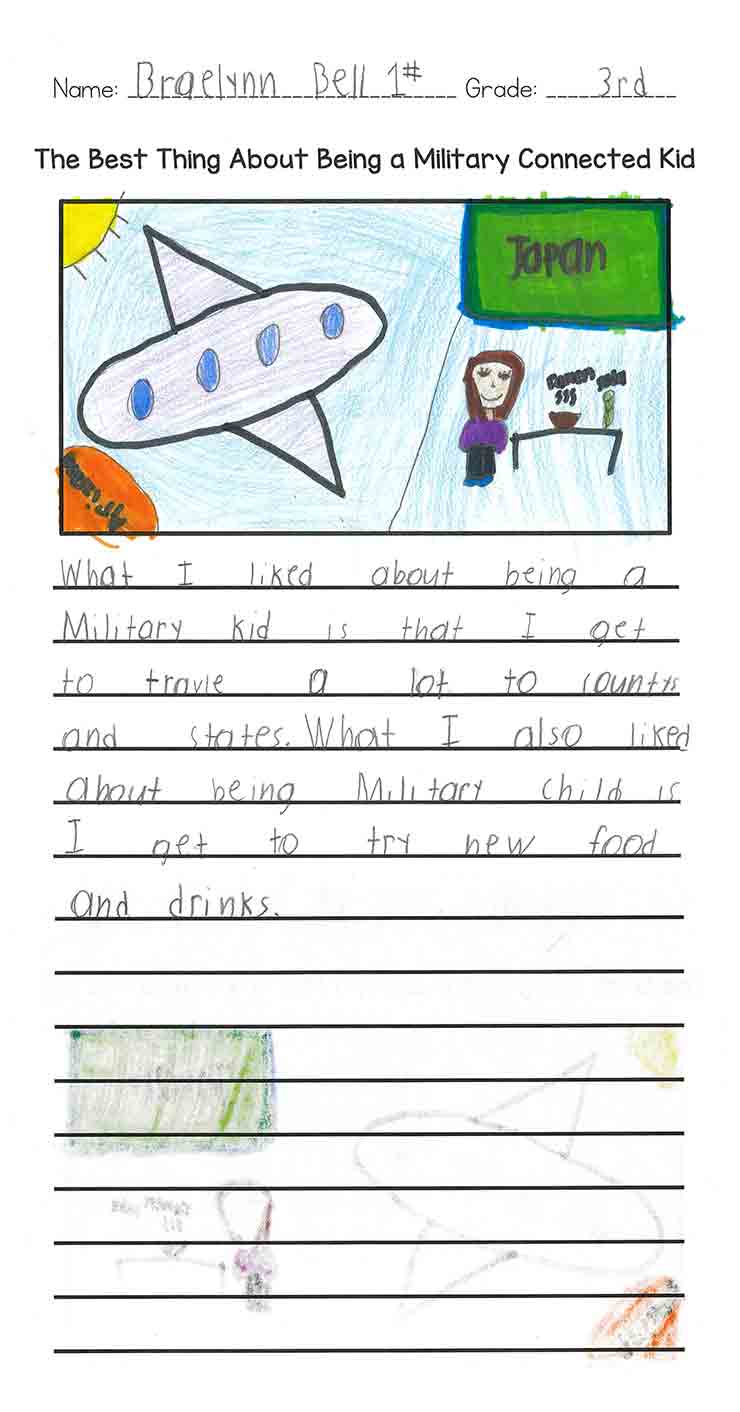 Name: Braelynn Bell 1# Grade: 3rd
The Best Thing About Being a Military Connected Kid
Japan
Ramen
What I liked about being a
Military kid is that I get
to travle a lot to countys
and states. What I also liked
about being Military child is
I get to try new food
and drinks.